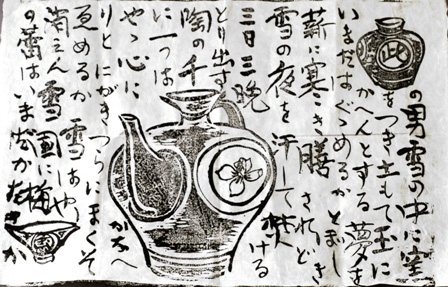 此の男雪の中に窯
をつき立もて玉に
かへんとする夢を
いまだはぐゝめるかとぼしき
薪に寒き膳 されど
雪の夜を汗して焚ける
三日三晩
とり出す
陶の千
に一つは
やゝ心に
かなへ
りとにがき つらに
ゑめるか 雪は
雪国に梅
の蕾は いまだかたきか